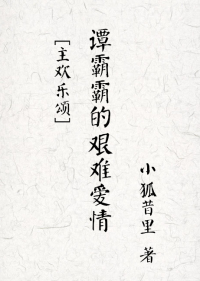 [主欢乐颂]
谭霸霸的艰难爱情
小狐昔里 著